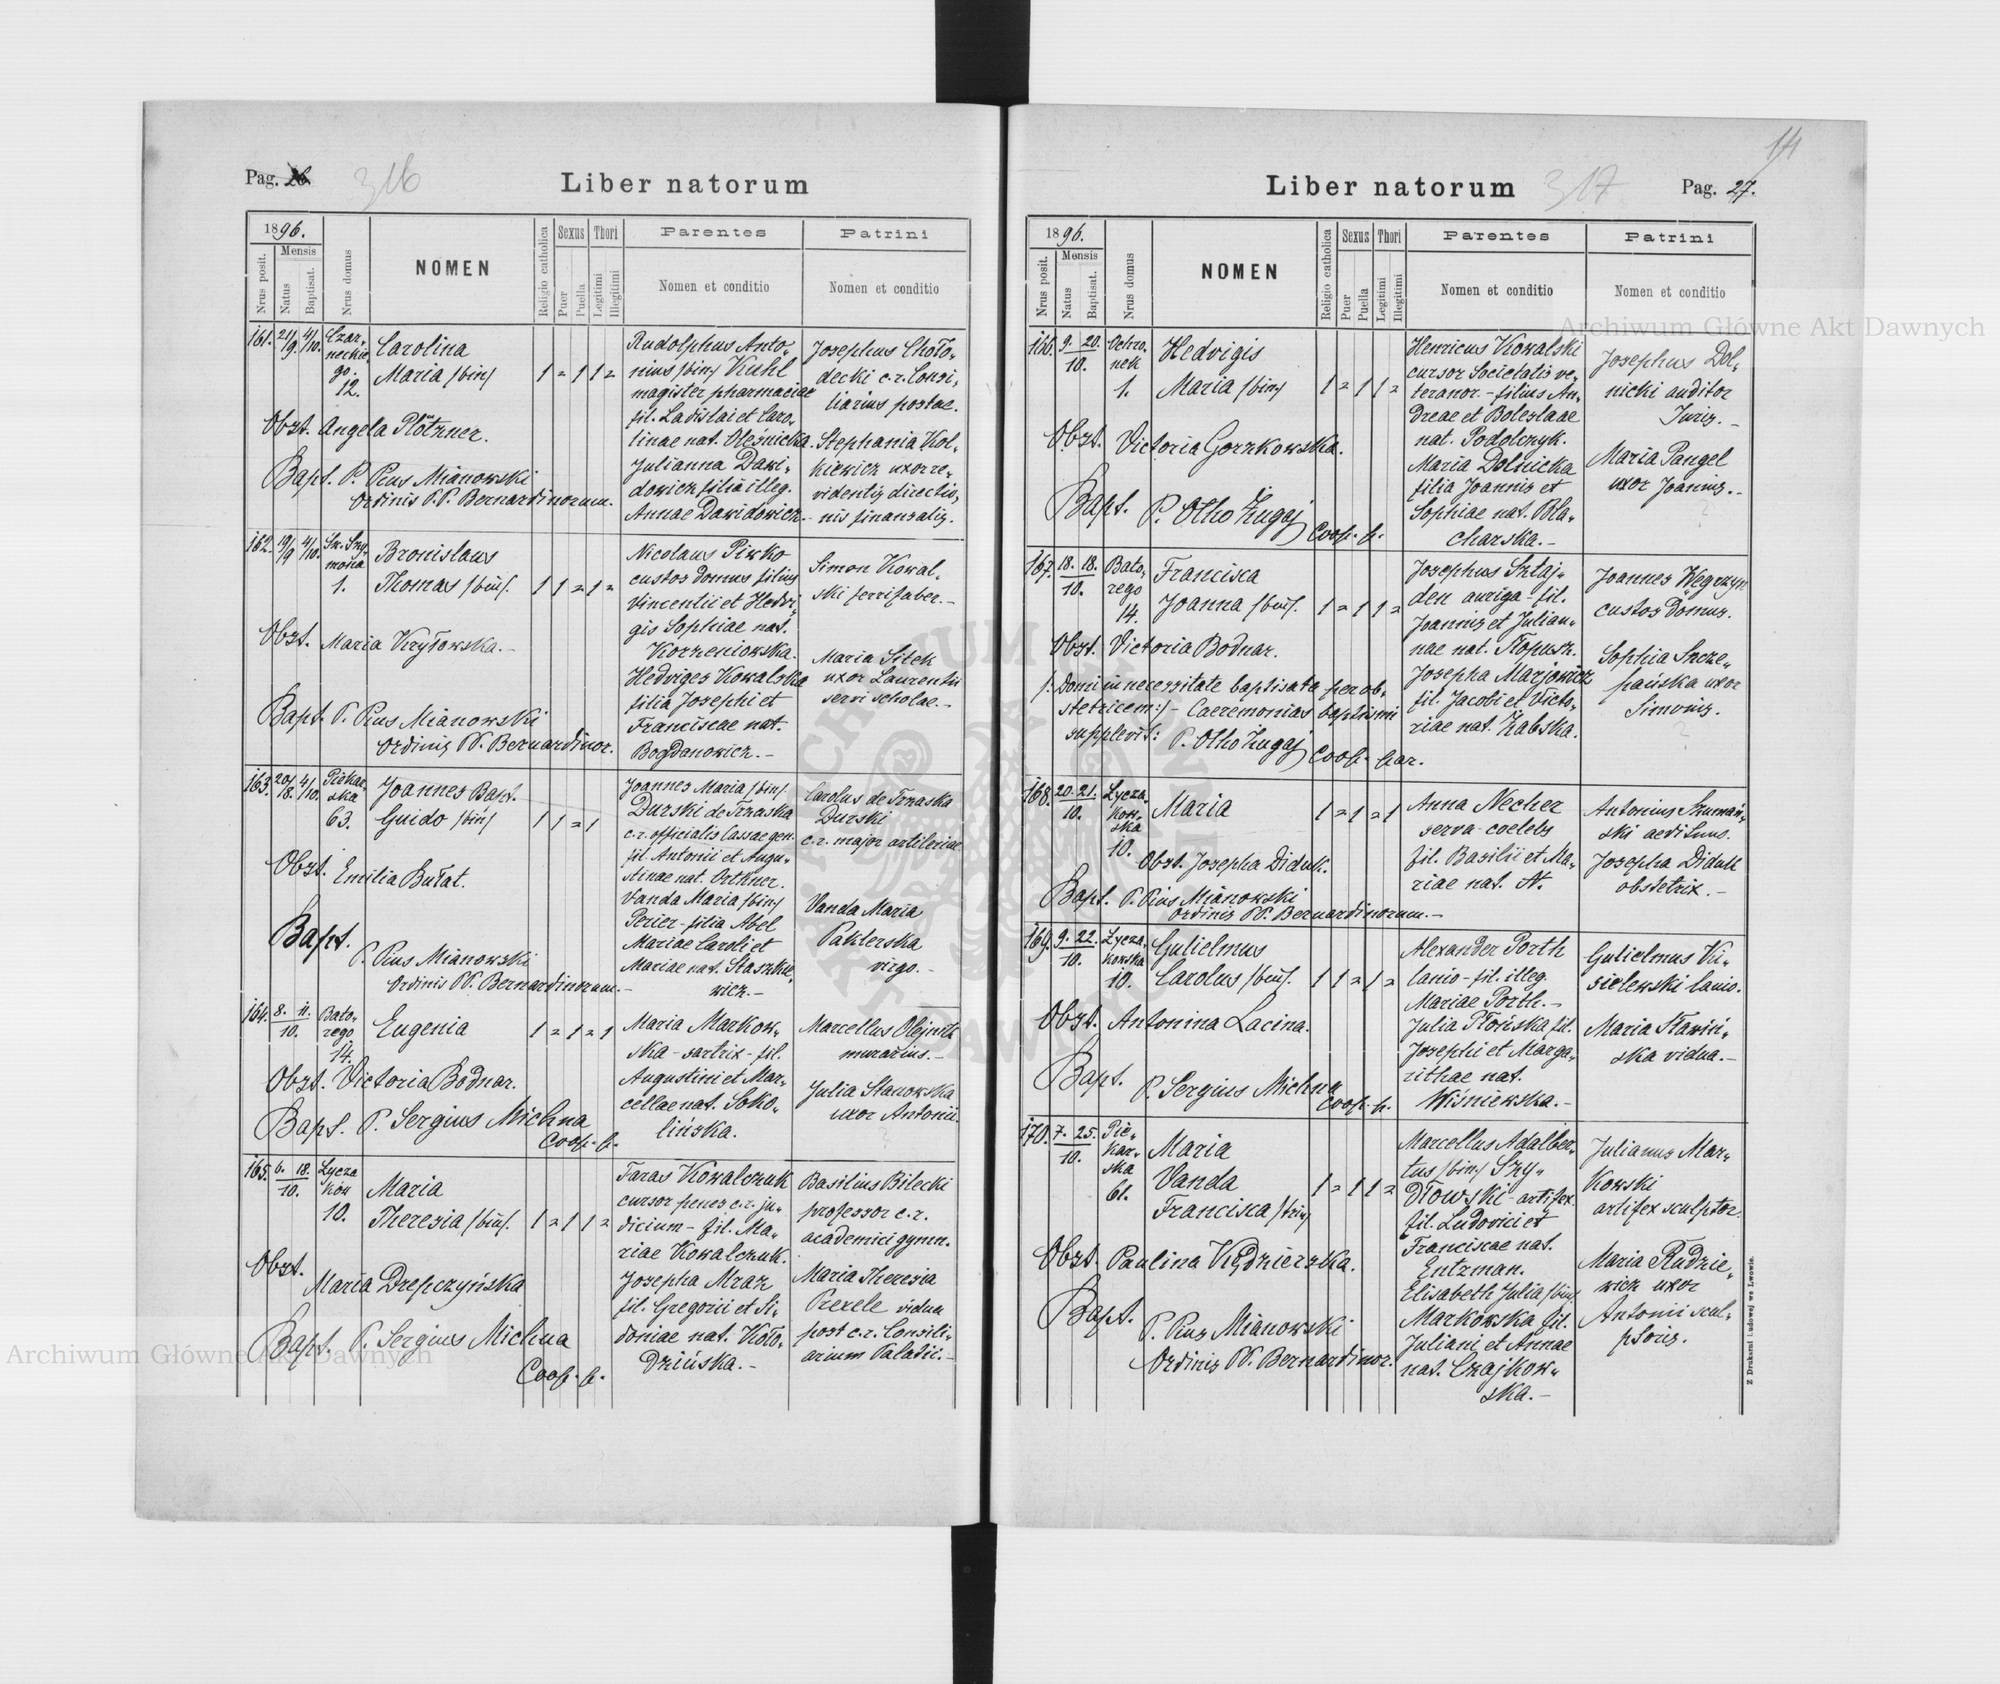 Pag. 26.
316
Liber natorum
1896.
Nrus posit.
Mensis
Natus
Baptisat.
Nrus domus
NOMEN
Religio catholica
Sexus
Puer
Puella
Thori
Legitimi
Illegitimi
Parentes
Nomen et conditio
Patrini
Nomen et conditio
161. 21/9. 4/10. Czar„
neckie„
go.
12.
Carolina
Maria /bin/
1 = 1 1 =
Obst. Angela Plötzner.
Bapt. P. Pius Mianowski
Ordinis P.P. Bernardinorum.
Rudolphus Anto„
nius /bin/ Kuhl
magister pharmaciae
fil. Ladislai et Caro„
linae nat. Oleśnicka.
Julianna Dawi„
dowicz filia illeg.
Annae Dawidowicz.
Josephus Choło„
decki c.r. Consi„
liarius postae.
Stephania Kol„
kiewicz uxor re„
videntis directio„
nis finansalis.
162. 19/9 4/10. Św. Szy„
mona
1.
Bronislaus
Thomas /bin/.
1 1 = 1 =
Obst. Maria Kryłowska.
Bapt. P. Pius Mianowski
Ordinis PP. Bernardinor.
Nicolaus Piwko
custos domus filius
Vincentii et Hedvi„
gis Sophiae nat.
Korzeniowska.
Hedviges Kowalska
filia Josephi et
Franciscae nat.
Bogdanowicz.
Simon Kowal„
ski ferrifaber.
Maria Sitek
uxor Laurentii
servi scholae.
163. 20/8. 4/10. Piekar„
ska
63.
Joannes Bapt.
Guido /bin/
1 1 = 1
Obst. Emilia Bułat.
Bapt.
P. Pius Mianowski
Ordinis PP. Bernardinorum.
Joannes Maria /bin/.
Durski de Trzaska
c.r. officialis Cassae gen.
fil. Antonii et Augu„
stinae nat. Ortkner.
Vanda Maria /bin/
Perier - filia Abel
Mariae Caroli et
Mariae nat. Staszkie„
wicz.
Carolus de Trzaska
Durski
c.r. major artileriae
Vanda Maria
Paklerska
virgo.
164. 8. 11.
10.
Bato„
rego
14.
Eugenia
1 = 1 = 1
Obst. Victoria Bodnar.
Bapt. P. Sergius Michna
Coop. p.
Maria Markow„
ska - sartrix - fil.
Augustini et Mar„
cellae nat. Soko„
lińska.
Marcellus Olejnik
murarius.
Julia Stanowska
uxor Antonii.
165. 6. 18.
10.
Lycza
ków
10.
Maria
Theresia /bin/.
1 = 1 1 =
Obst.
Maria Drepczyńska
Bapt. P. Sergius Michna
Coop. p.
Taras Kowalczuk
cursor penes c.r. ju„
dicium - fil. Ma„
riae Kowalczuk.
Josepha Mraz
fil. Gregorii et Si„
doniae nat. Koło„
dzińska.
Basilius Bilecki
professor c.r.
academici gymn.
Maria Theresia
Prexele vidua
post c.r. Consili„
arium Palatii.
14
Liber natorum
317
Pag. 27.
1896.
Nrus posit.
Mensis
Natus
Baptisat.
Nrus domus
NOMEN
Religio catholica
Sexus
Puer
Puella
Thori
Legitimi
Illegitimi
Parentes
Nomen et conditio
Patrini
Nomen et conditio
166. 9. 20.
10.
Ochro„
nek
1.
Hedvigis
Maria /bin/
1 = 1 1 =
Obst. Victoria Gorzkowska.
Bapt. P. Otho Zugaj
Coop. p.
Henricus Kowalski
cursor Societatis ve„
teranor. - filius An„
dreae et Boleslaae
nat. Podolczyk.
Maria Dolnicka
filia Joannis et
Sophiae nat. Bla„
charska.
Josephus Dol„
nicki auditor
Juris.
Maria Pangel
uxor Joannis.
167. 18. 18.
10.
Bato„
rego
14.
Francisca
Joanna /bin/.
1 = 1 1 =
Obst. Victoria Bodnar.
/: Domi in necessitate baptisata per ob„
stetricem :/ - Caeremonias baptismi
supplevit: P. Otho Zugaj
Coop. par.
Josephus Sztaj„
den auriga - fil.
Joannis et Julian„
nae nat. Łopusz.
Josepha Marjowicz
fil. Jacobi et Victo„
riae nat. Żabska.
Joannes Węgrzyn
custos domus.
Sophia Szcze„
pańska uxor
Simonis.
168. 20. 21.
10.
Lycza„
kow„
ska
10.
Maria
1 = 1 = 1
Obst. Josepha Diduk.
Bapt. P. Pius Mianowski
Ordinis PP. Bernardinorum.
Anna Necher
serva coelebs
fil. Basilii et Ma„
riae nat. N.
Antonius Szumań„
ski aedituus.
Josepha Diduk
obstetrix.
169. 9. 22.
10.
Lycza„
kowska
10.
Gulielmus
Carolus /bin/.
1 1 = 1 =
Obst. Antonina Lacina.
Bapt.
P. Sergius Michna
Coop. p.
Alexander Porth
lanio - fil. illeg.
Mariae Porth.
Julia Płońska fil.
Josephi et Marga„
rithae nat.
Wiśniewska.
Gulielmus Ki„
sielewski lanio.
Maria Sławiń„
ska vidua.
170. 7. 25.
10.
Pie„
kar„
ska
61.
Maria
Vanda
Francisca /trin/
1 = 1 1 =
Obst. Paulina Kędzierska.
Bapt.
P. Pius Mianowski
Ordinis PP. Bernardinor.
Marcellus Adalber„
tus /bin/ Szy„
dłowski - artifex
fil. Ludovici et
Franciscae nat.
Entzman.
Elisabeth Julia /bin/
Markowska fil.
Juliani et Annae
nat. Czajkow„
ska.
Julianus Mar„
kowski
artifex sculptor.
Maria Rudzie„
wicz uxor
Antonii scul„
ptoris.
Z Drukarni Ludowej we Lwowie.
Archiwum Główne Akt Dawnych
Archiwum Główne Akt Dawnych